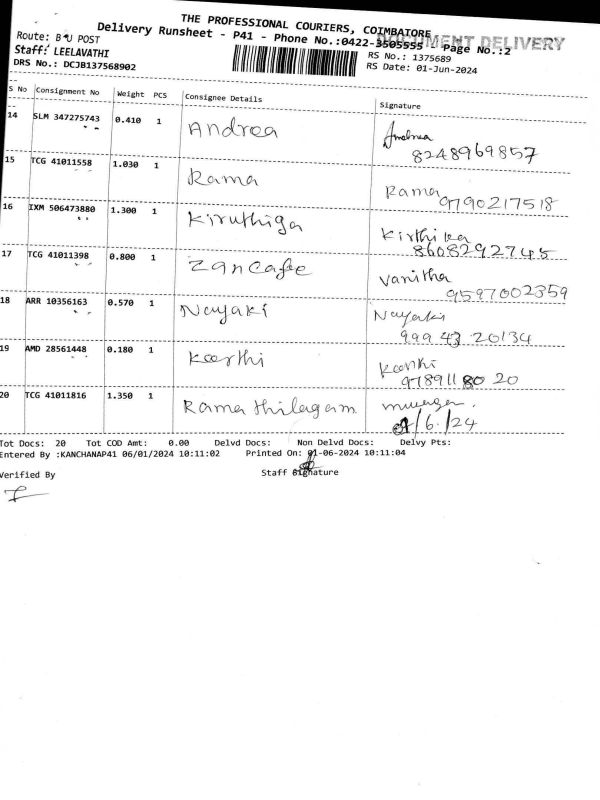 THE PROFESSIONAL COURIERS, COIMBAIORE
DOCUMENT DELIVERY
Delivery Runsheet - P41 - Phone No.:0422-3505555 Page No.:2
Route: B U POST
Staff: LEELAVATHI
RS No.: 1375689
DRS No.: DCJB137568902
RS Date: 01-Jun-2024
S No Consignment No Weight PCS Consignee Details Signature
14 SLM 347275743 0.410 1 Andrea Andrea
8248969857
15 TCG 41011558 1.030 1 Rama Rama
9790217518
16 IXM 506473880 1.300 1 Kiruthiga Kirthika
8608292745
17 TCG 41011398 0.800 1 Zancafe Vanitha
9597002359
18 ARR 10356163 0.570 1 Nayaki Nayaki
999 43 20134
19 AMD 28561448 0.180 1 Keerthi Keerthi
978911 80 20
20 TCG 41011816 1.350 1 Rama thilagam
/6/24
Tot Docs: 20 Tot COD Amt: 0.00 Delvd Docs: Non Delvd Docs: Delvy Pts:
Entered By :KANCHANAP41 06/01/2024 10:11:02 Printed On: 01-06-2024 10:11:04
Verified By Staff Signature